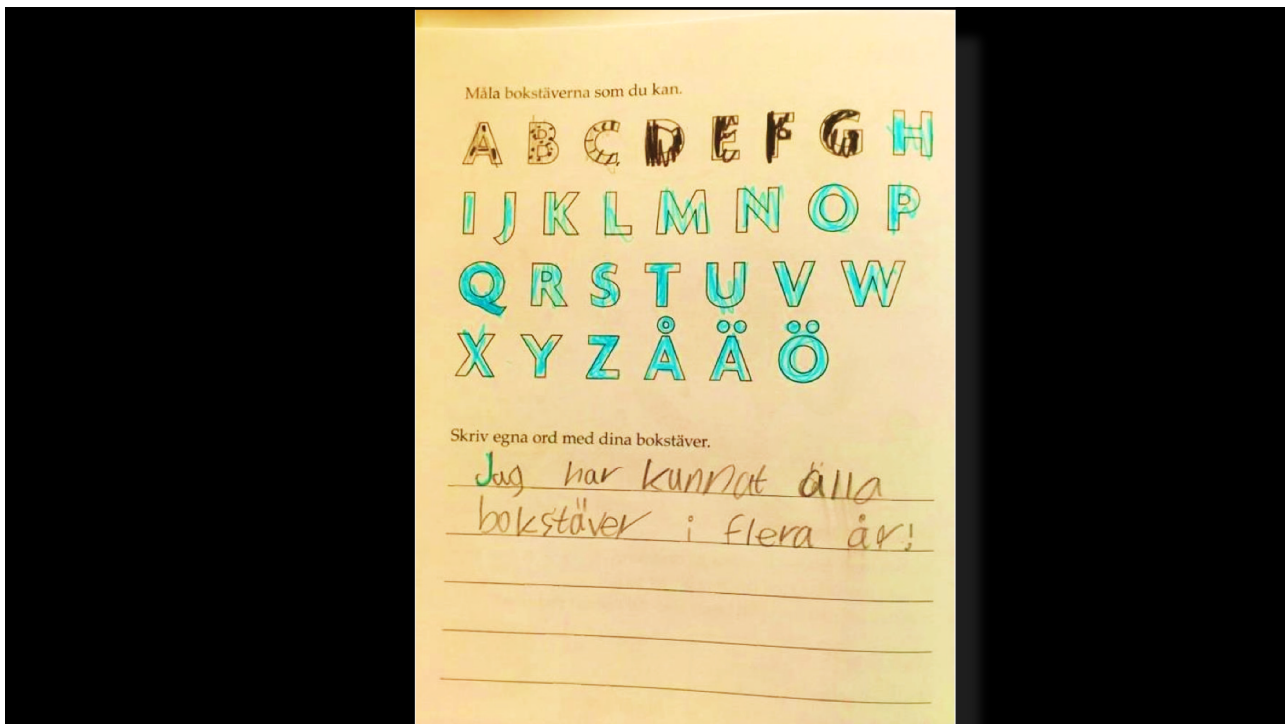 Måla bokstäverna som du kan.
A B C D E F G H
I J K L M N O P
Q R S T U V W
X Y Z Å Ä Ö
Skriv egna ord med dina bokstäver.
Jag har kunnat alla
bokstäver i flera år!